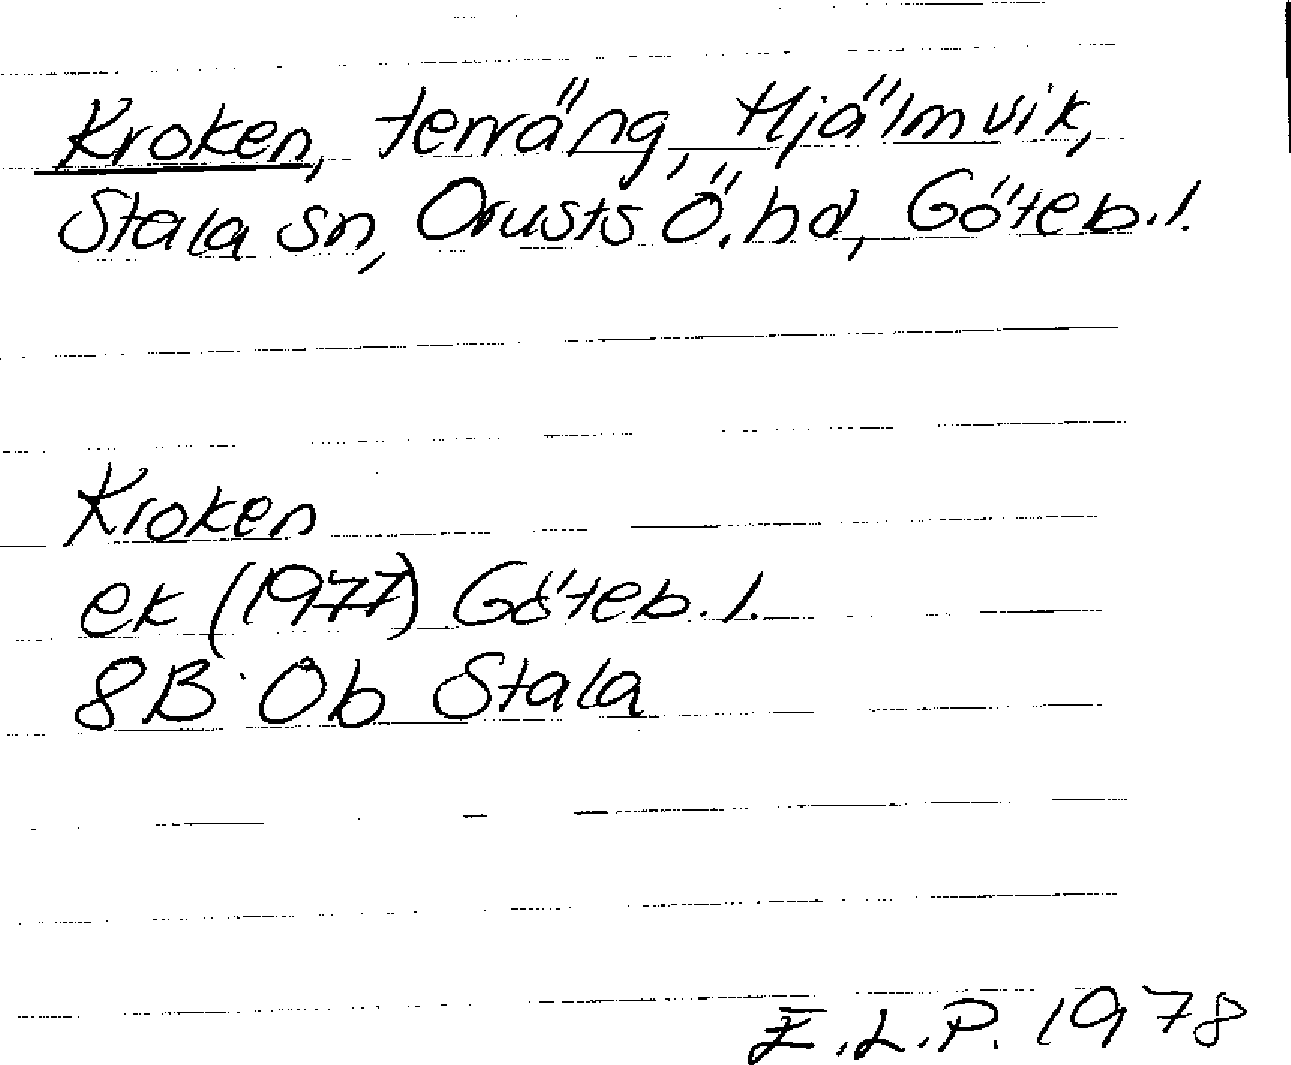 Kroken, terräng, Hjälmvik,
Stala sn, Orusts Ö. hd, Göteb. l.
Kroken
ek (1977) Göteb. l.
8B 0b Stala
E.L.P. 1978